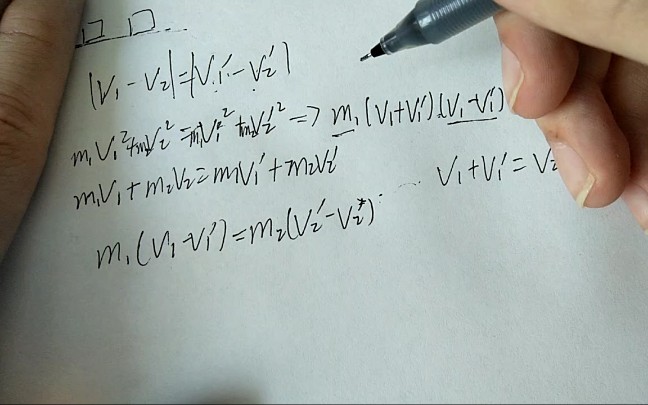 |V₁ - V₂| = |V₁' - V₂'|
m₁V₁² + m₂V₂² = m₁V₁'² + m₂V₂'² => m₁(V₁+V₁')(V₁-V₁')
m₁V₁ + m₂V₂ = m₁V₁' + m₂V₂'
V₁ + V₁' = V₂
m₁(V₁-V₁') = m₂(V₂'-V₂)